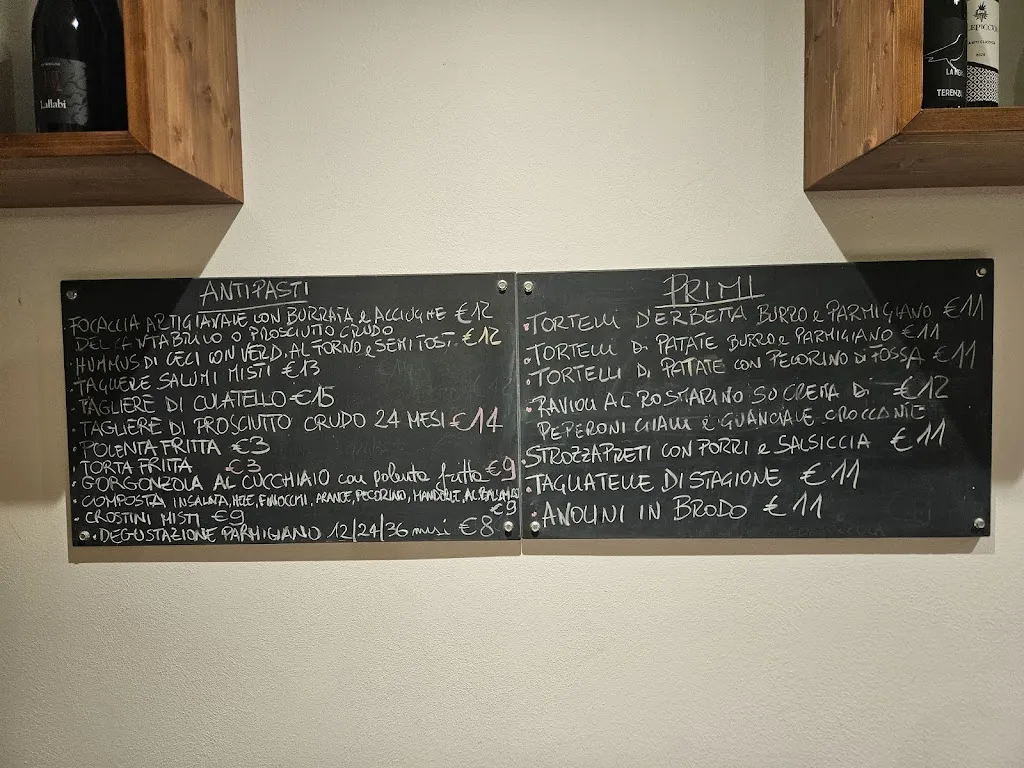 Lallabi
LA NE
TERENZU
LEPICCO
ANTIPASTI
FOCACCIA ARTIGIANALE CON BURRATA e ACCIUGHE €12
DEL CANTABRICO O PROSCIUTTO CRUDO
HUMMUS DI CECI CON VERD. AL FORNO e SEMI TOST. €12
TAGLIERE SALUMI MISTI €13
TAGLIERE DI CULATELLO €15
TAGLIERE DI PROSCIUTTO CRUDO 24 MESI €14
POLENTA FRITTA €3
TORTA FRITTA €3
GORGONZOLA AL CUCCHIAIO con polenta fritta €9
COMPOSTA INSALATA, MELE, FINOCCHI, ARANCE, PECORINO, MANDORLE,
€9
CROSTINI MISTI €9
DEGUSTAZIONE PARMIGIANO 12/24/36 mesi €8
PRIMI
TORTELLI D'ERBETTA BURRO e PARMIGIANO €11
TORTELLI DI PATATE BURRO e PARMIGIANO €11
TORTELLI DI PATATE CON PECORINO DI FOSSA €11
RAVIOLI AL ROSMARINO SU CREMA DI €12
PEPERONI GIALLI e GUANCIALE CROCCANTE
STROZZAPRETI CON PORRI e SALSICCIA €11
TAGLIATELLE DI STAGIONE €11
ANOLINI IN BRODO €11